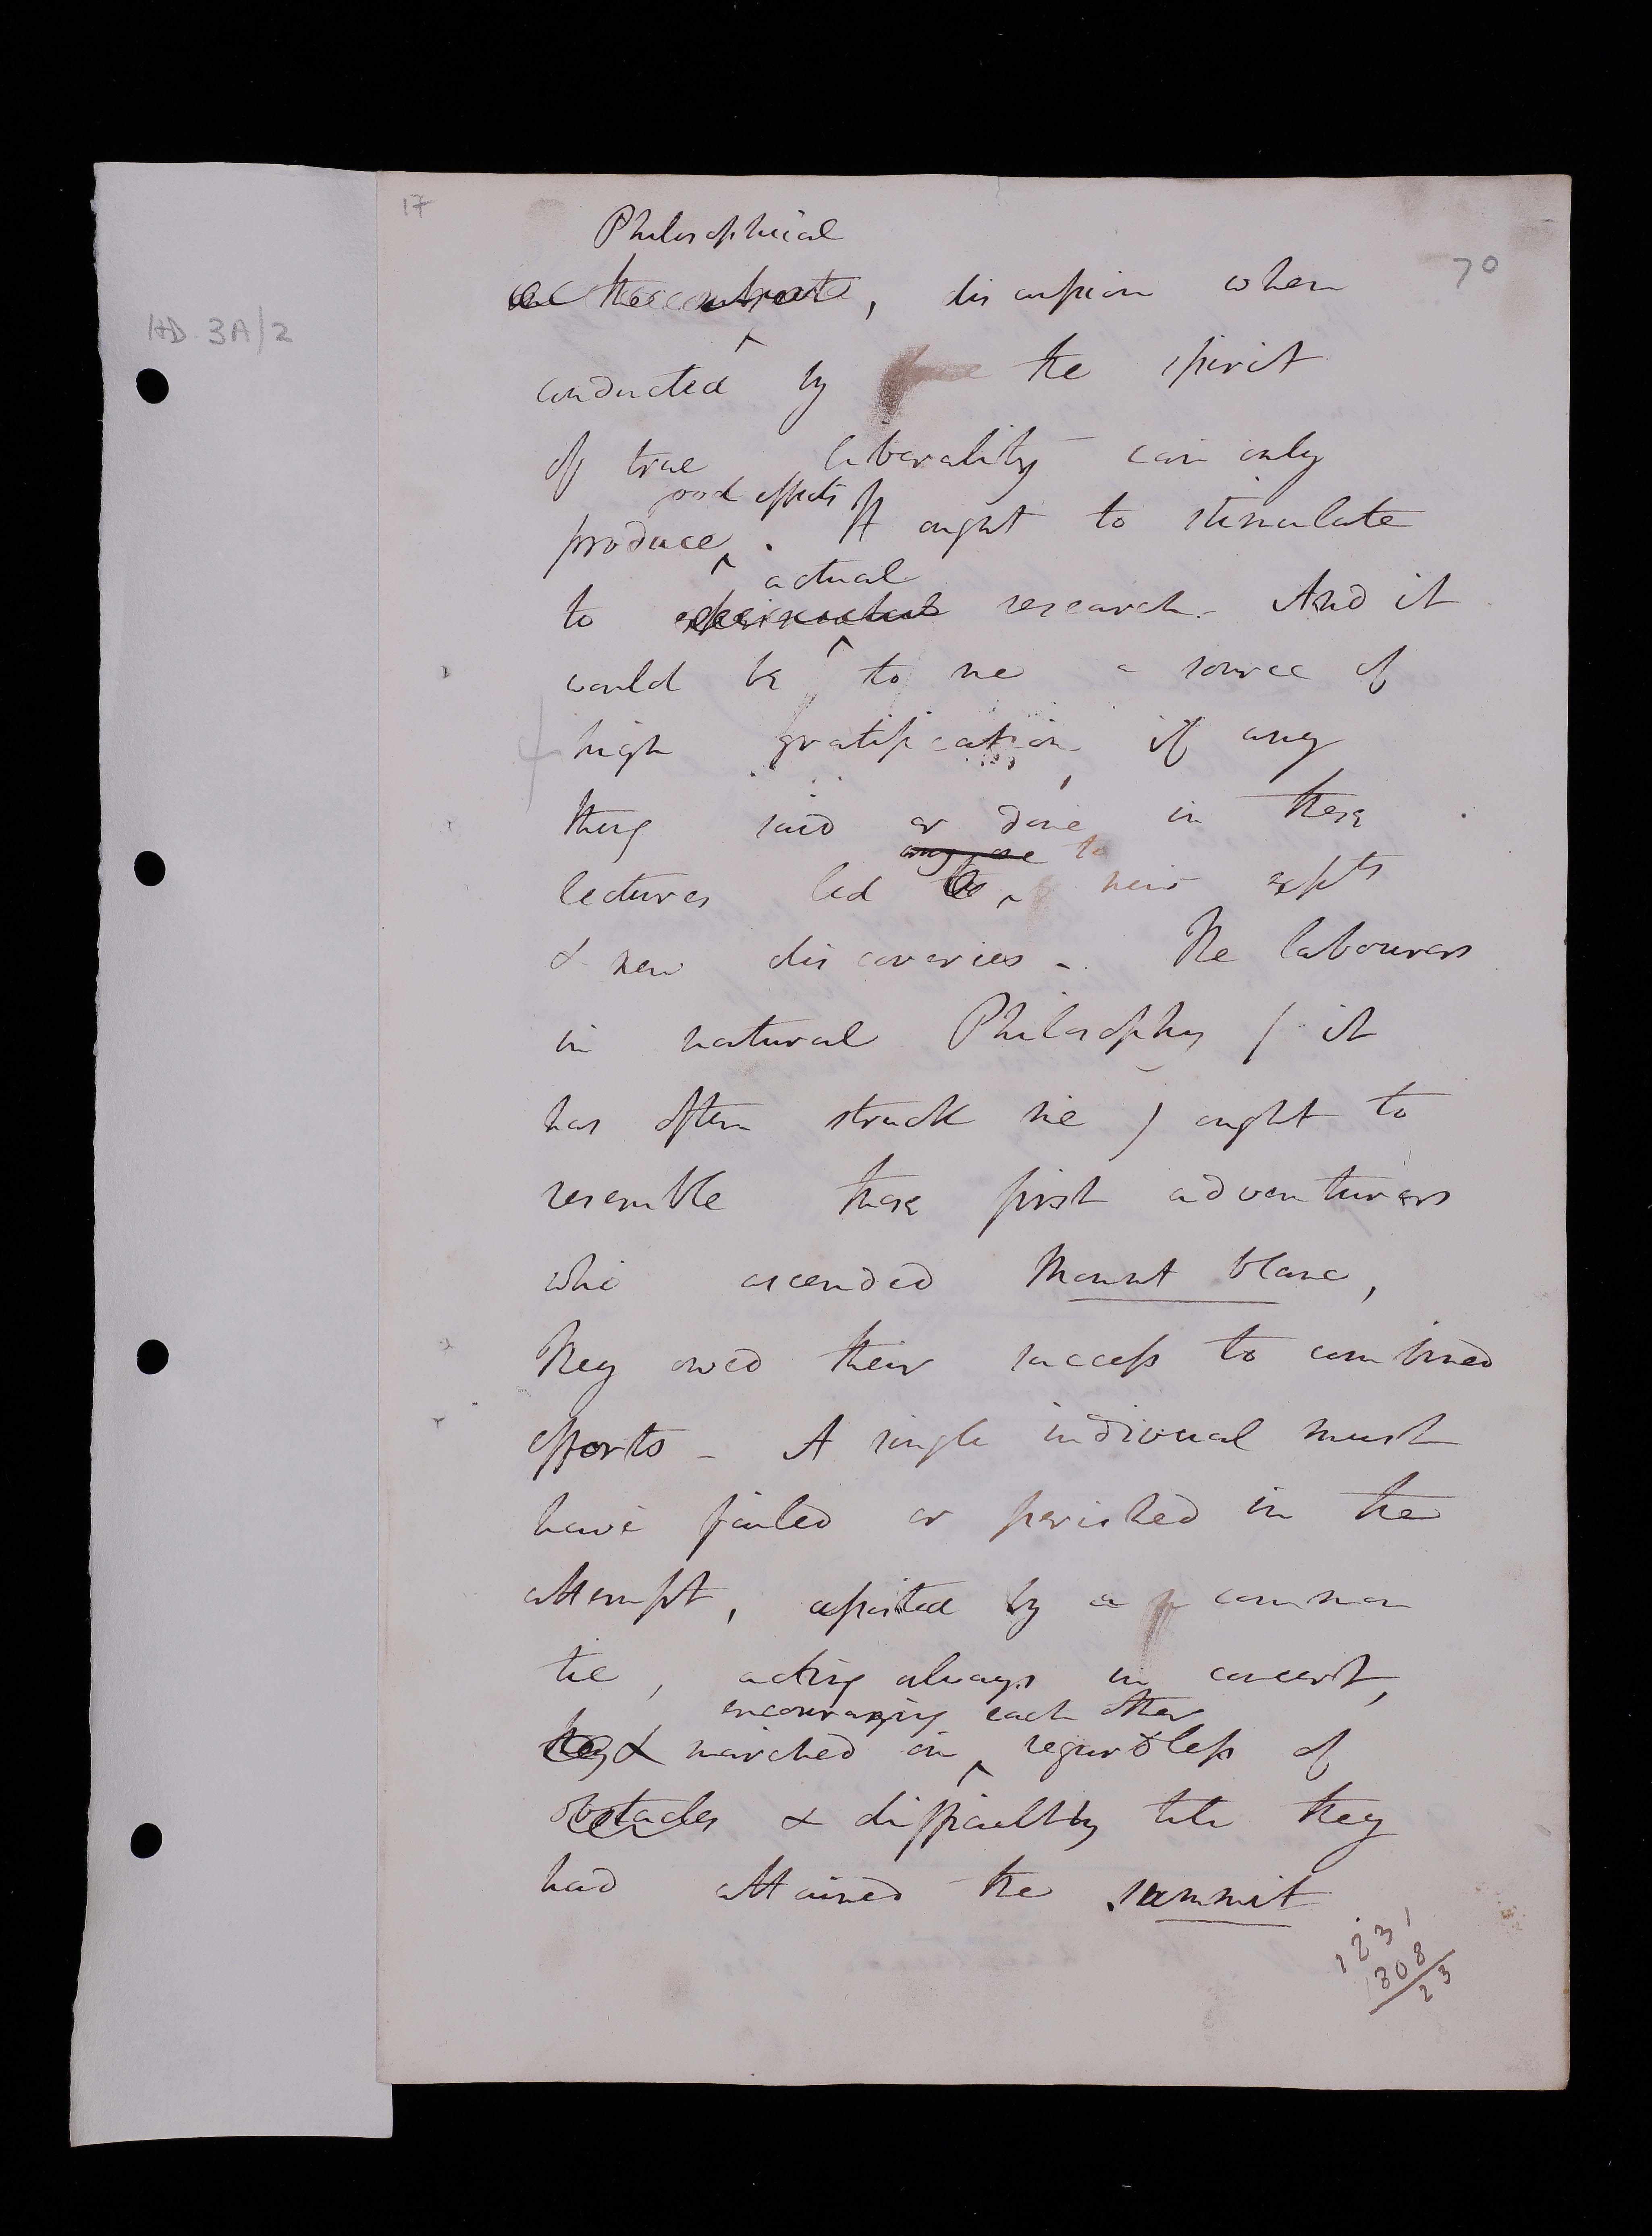 17
70
HD 3A/2
Philosophical
discussion when
conducted by the spirit
of true liberality can only
good effects
produce . It ought to stimulate
actual
to experimental research. And it
would be to me a source of
high gratification if any
thing said or done in these
any one to
lectures led to new expts
& new discoveries -. The labourers
in natural Philosophy ( it
has often struck me ) ought to
resemble those first adventurers
who ascended Mount blanc,
They owed their success to combined
efforts - A single indivual must
have failed or perished in the
attempt, assisted by a common
tie, acting always in concert,
encouraging each other
they & marched on regardless of
obstacles & difficulty till they
had attained the summit
123
308
23